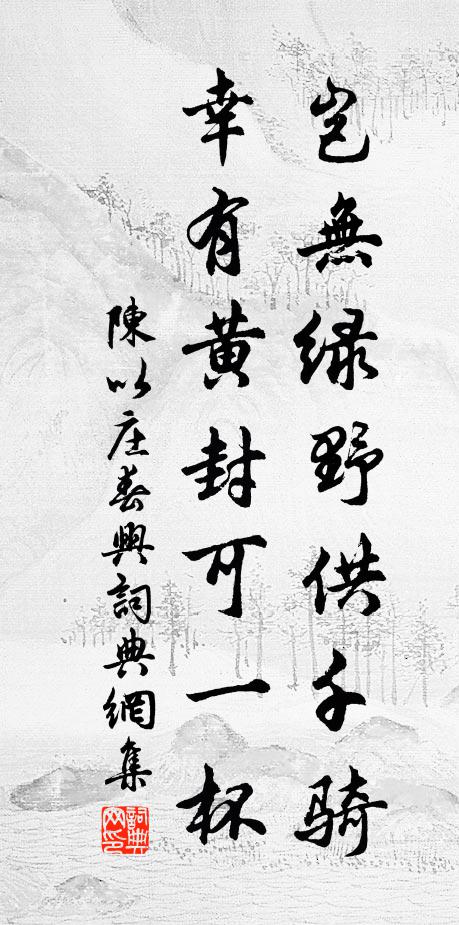 豈無緑野供千騎
幸有黄封可一杯
陳以庄春興詞典網集
詞典网印